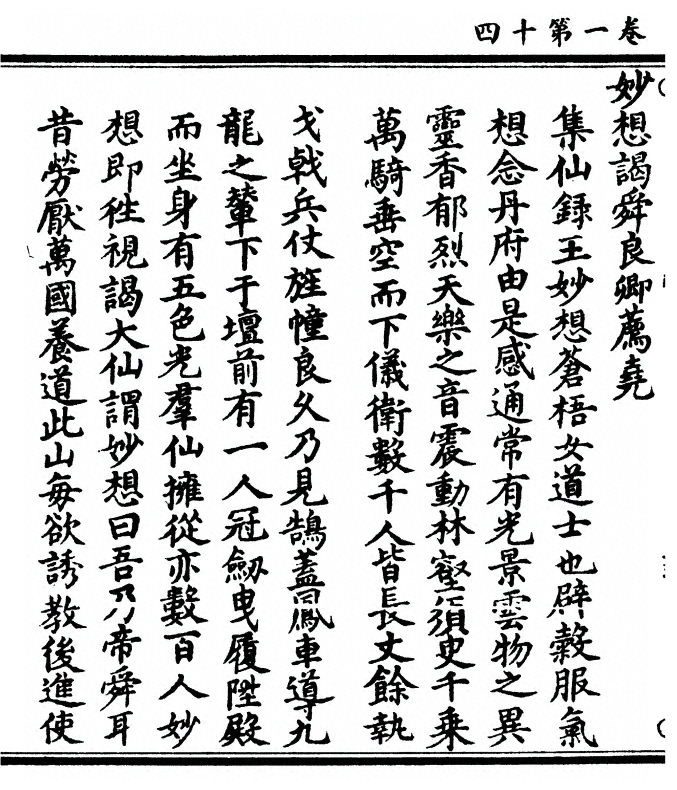 卷一第十四
妙想謁舜良卿薦堯
集仙録王妙想蒼梧女道士也辟糓服氣
想念丹府由是感通常有光景雲物之異
靈香郁烈天樂之音震動林壑須臾千乗
萬騎垂空而下儀衛數千人皆長丈餘執
戈戟兵仗旌幢良久乃見鵠蓋鳳車導九
龍之輦下于壇前有一人冠劔曳履陞殿
而坐身有五色光羣仙擁從亦數百人妙
想即徃視謁大仙謂妙想曰吾乃帝舜耳
昔勞厭萬國養道此山毎欲誘教後進使